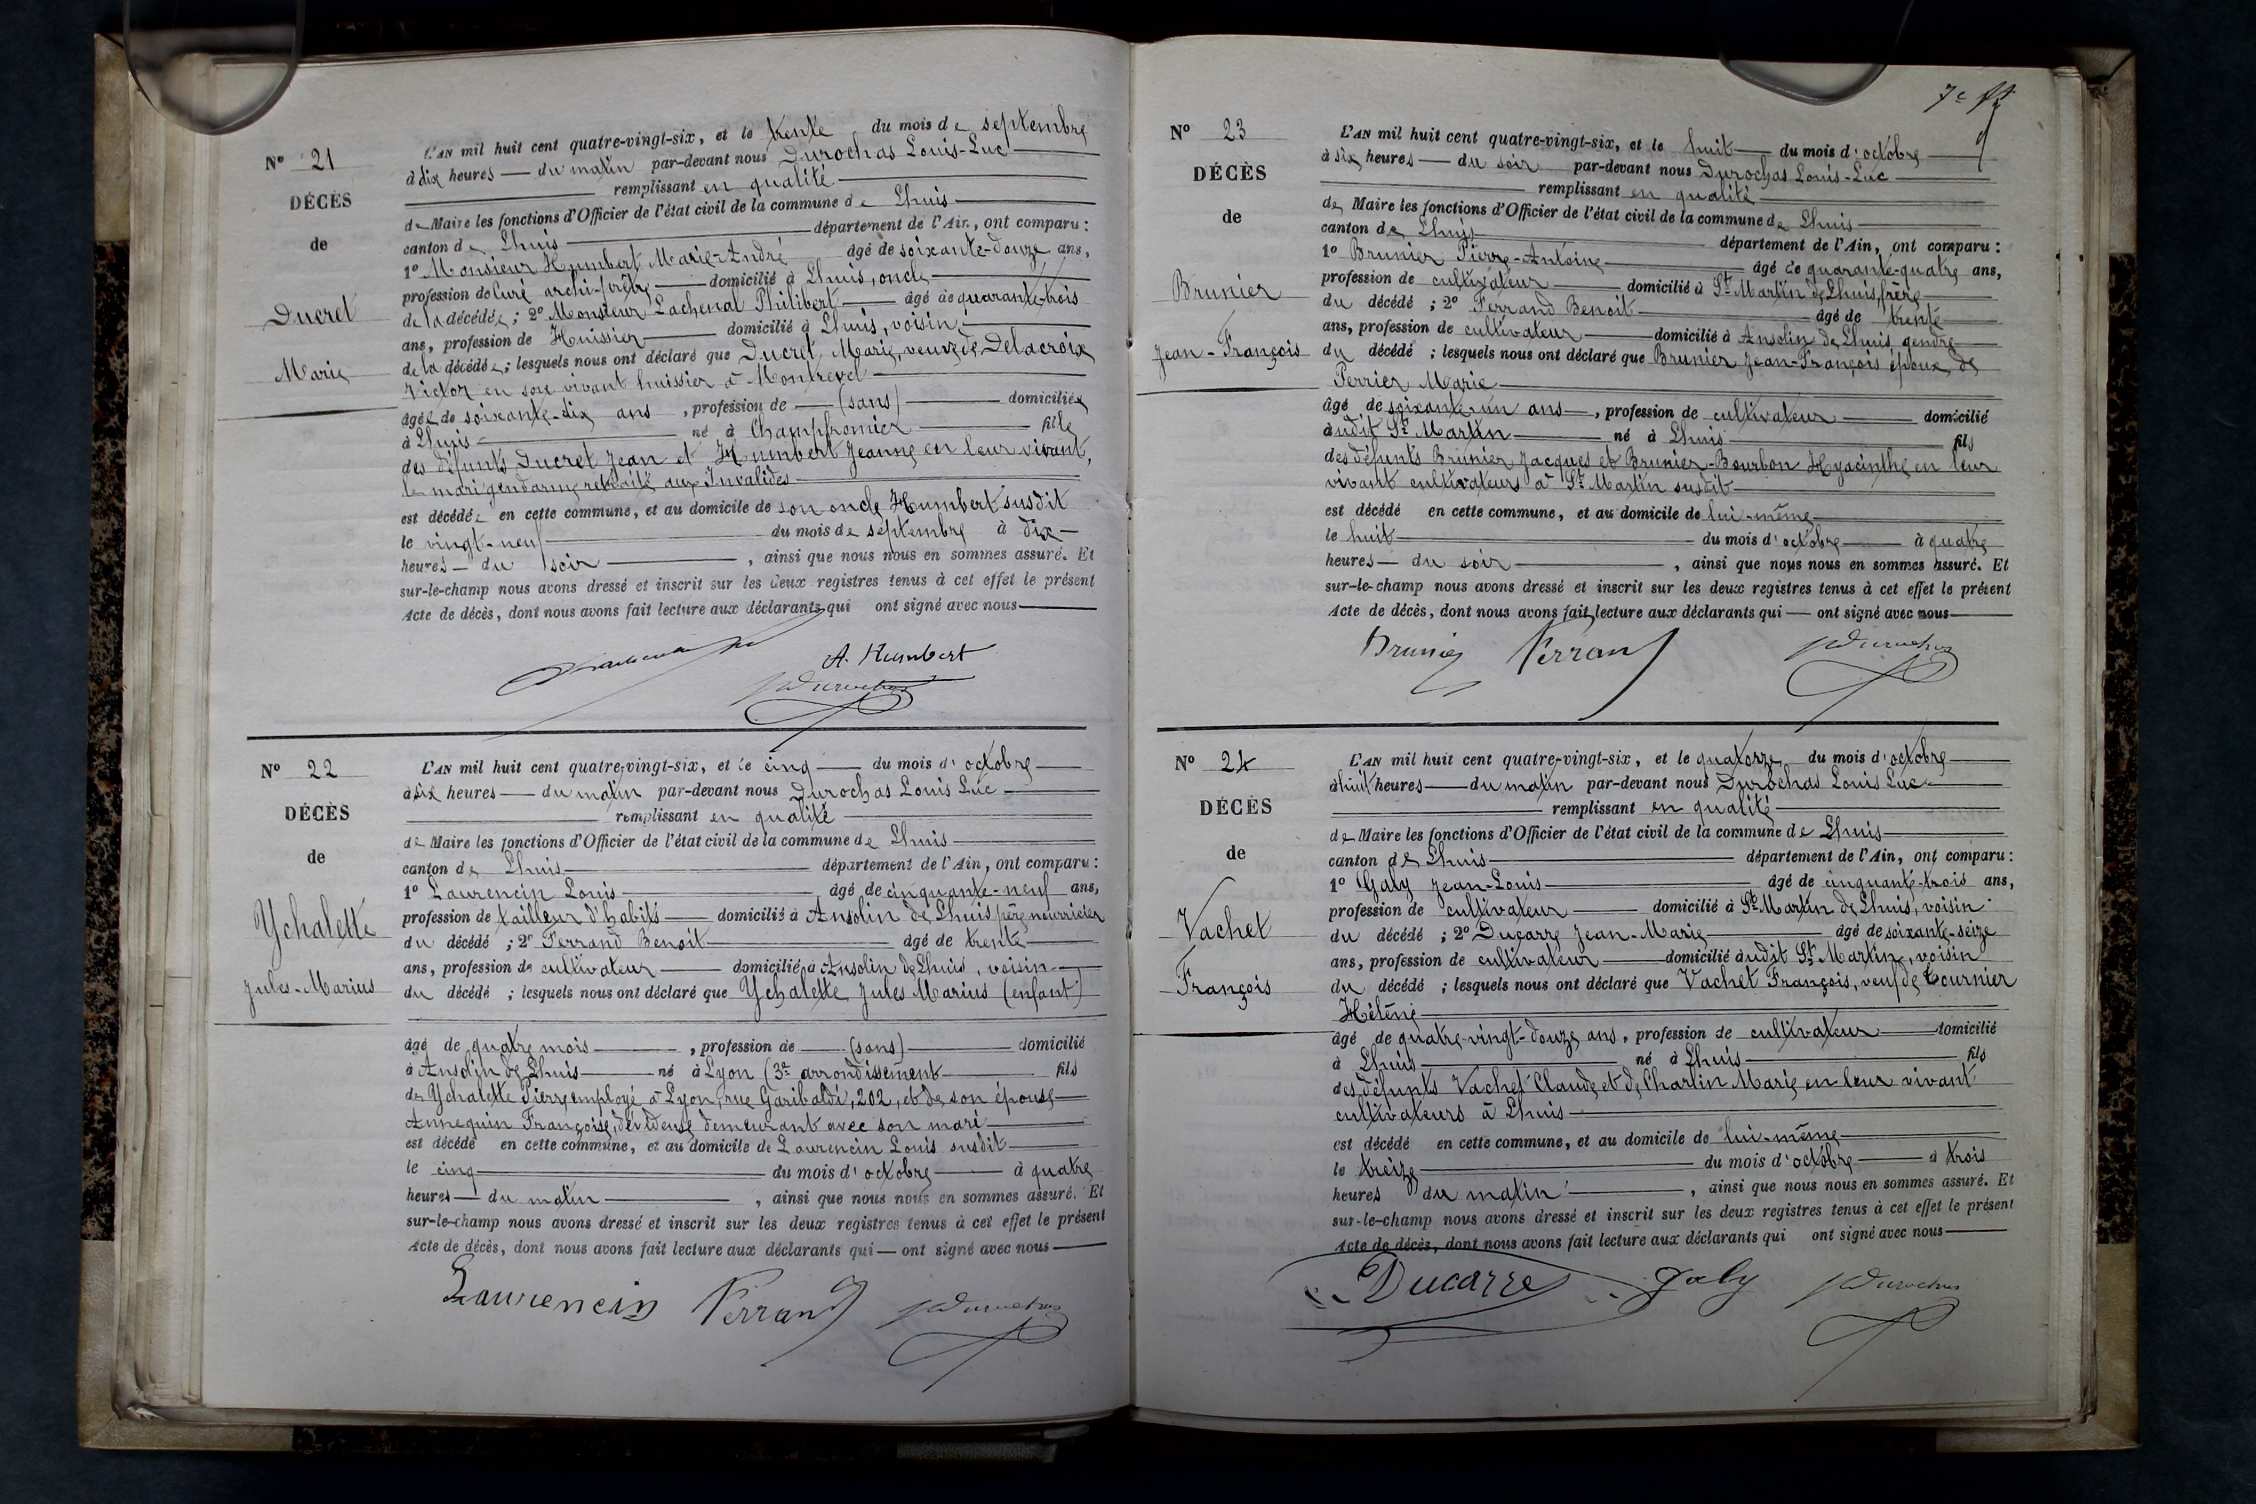 Nº 21
DÉCÈS
de
Ducret
Marie
L'AN mil huit cent quatre-vingt-six, et le trente du mois de septembre
à dix heures — du matin par-devant nous Durochas Louis-Luc
remplissant en qualité
de Maire les fonctions d'Officier de l'état civil de la commune de Lhuis
canton de Lhuis département de l'Ain, ont comparu :
1º Monsieur Humbert Marie-André âgé de soixante-douze ans,
profession de Curé archi-prêtre domicilié à Lhuis, oncle
de la décédée ; 2º Monsieur Lachenal Philibert âgé de quarante-trois
ans, profession de Huissier domicilié à Lhuis, voisin
de la décédée ; lesquels nous ont déclaré que Ducret, Marie, veuve de Delacroix
Victor en son vivant huissier à Montrevel
âgée de soixante-dix ans, profession de (sans) domiciliée
à Lhuis né à Champfromier fille
des défunts Ducret Jean et Humbert Jeanne en leur vivant,
le mari gendarme retraité aux Invalides
est décédée en cette commune, et au domicile de son oncle Humbert susdit
le vingt-neuf du mois de septembre à dix
heures — du soir, ainsi que nous nous en sommes assuré. Et
sur-le-champ nous avons dressé et inscrit sur les deux registres tenus à cet effet le présent
Acte de décès, dont nous avons fait lecture aux déclarants qui ont signé avec nous
A. Humbert
Durochas
Nº 22
DÉCÈS
de
Ychalette
Jules-Marius
L'AN mil huit cent quatre-vingt-six, et le cinq du mois d'octobre
à six heures — du matin par-devant nous Durochas Louis Luc
remplissant en qualité
de Maire les fonctions d'Officier de l'état civil de la commune de Lhuis
canton de Lhuis département de l'Ain, ont comparu :
1º Laurencin Louis âgé de cinquante-neuf ans,
profession de tailleur d'habits domicilié à Ansolin de Lhuis père nourricier
du décédé ; 2º Ferrand Benoit âgé de trente
ans, profession de cultivateur domicilié à Ansolin de Lhuis, voisin
du décédé ; lesquels nous ont déclaré que Ychalette Jules Marius (enfant)
âgé de quatre mois, profession de (sans) domicilié
à Ansolin de Lhuis né à Lyon (3e arrondissement fils
de Ychalette Pierre employé à Lyon, rue Garibaldi, 202, et de son épouse
Annequin Françoise, dévideuse demeurant avec son mari
est décédé en cette commune, et au domicile de Laurencin Louis susdit
le cinq du mois d'octobre à quatre
heures — du matin, ainsi que nous nous en sommes assuré. Et
sur-le-champ nous avons dressé et inscrit sur les deux registres tenus à cet effet le présent
Acte de décès, dont nous avons fait lecture aux déclarants qui — ont signé avec nous
Laurencin Ferrand Durochas
7e
Nº 23
DÉCÈS
de
Brunier
Jean-François
L'AN mil huit cent quatre-vingt-six, et le huit du mois d'octobre
à six heures — du soir par-devant nous Durochas Louis-Luc
remplissant en qualité
de Maire les fonctions d'Officier de l'état civil de la commune de Lhuis
canton de Lhuis département de l'Ain, ont comparu :
1º Brunier Pierre-Antoine âgé de quarante-quatre ans,
profession de cultivateur domicilié à St Martin de Lhuis, frère
du décédé ; 2º Ferrand Benoit âgé de trente
ans, profession de cultivateur domicilié à Ansolin de Lhuis, gendre
du décédé ; lesquels nous ont déclaré que Brunier Jean-François époux de
Perrier Marie
âgé de soixante-un ans, profession de cultivateur domicilié
audit St Martin né à Lhuis fils
des défunts Brunier Jacques et Brunier-Bourbon Hyacinthe en leur
vivant cultivateurs à St Martin susdit
est décédé en cette commune, et au domicile de lui-même
le huit du mois d'octobre à quatre
heures — du soir, ainsi que nous nous en sommes assuré. Et
sur-le-champ nous avons dressé et inscrit sur les deux registres tenus à cet effet le présent
Acte de décès, dont nous avons fait lecture aux déclarants qui — ont signé avec nous
Brunier Ferrand Durochas
Nº 24
DÉCÈS
de
Vachet
François
L'AN mil huit cent quatre-vingt-six, et le quatorze du mois d'octobre
à huit heures — du matin par-devant nous Durochas Louis Luc
remplissant en qualité
de Maire les fonctions d'Officier de l'état civil de la commune de Lhuis
canton de Lhuis département de l'Ain, ont comparu :
1º Galy Jean-Louis âgé de cinquante-trois ans,
profession de cultivateur domicilié à St Martin de Lhuis, voisin
du décédé ; 2º Ducarre Jean-Marie âgé de soixante-seize
ans, profession de cultivateur domicilié audit St Martin, voisin
du décédé ; lesquels nous ont déclaré que Vachet François, veuf de Tournier
Hélène
âgé de quatre-vingt-douze ans, profession de cultivateur domicilié
à Lhuis né à Lhuis fils
des défunts Vachet Claude et de Charlin Marie en leur vivant
cultivateurs à Lhuis
est décédé en cette commune, et au domicile de lui-même
le treize du mois d'octobre à trois
heures du matin, ainsi que nous nous en sommes assuré. Et
sur-le-champ nous avons dressé et inscrit sur les deux registres tenus à cet effet le présent
Acte de décès, dont nous avons fait lecture aux déclarants qui ont signé avec nous
Ducarre Galy Durochas